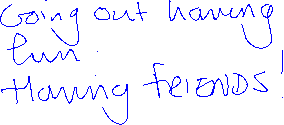 Going out having
fun.
Having FRIENDS!